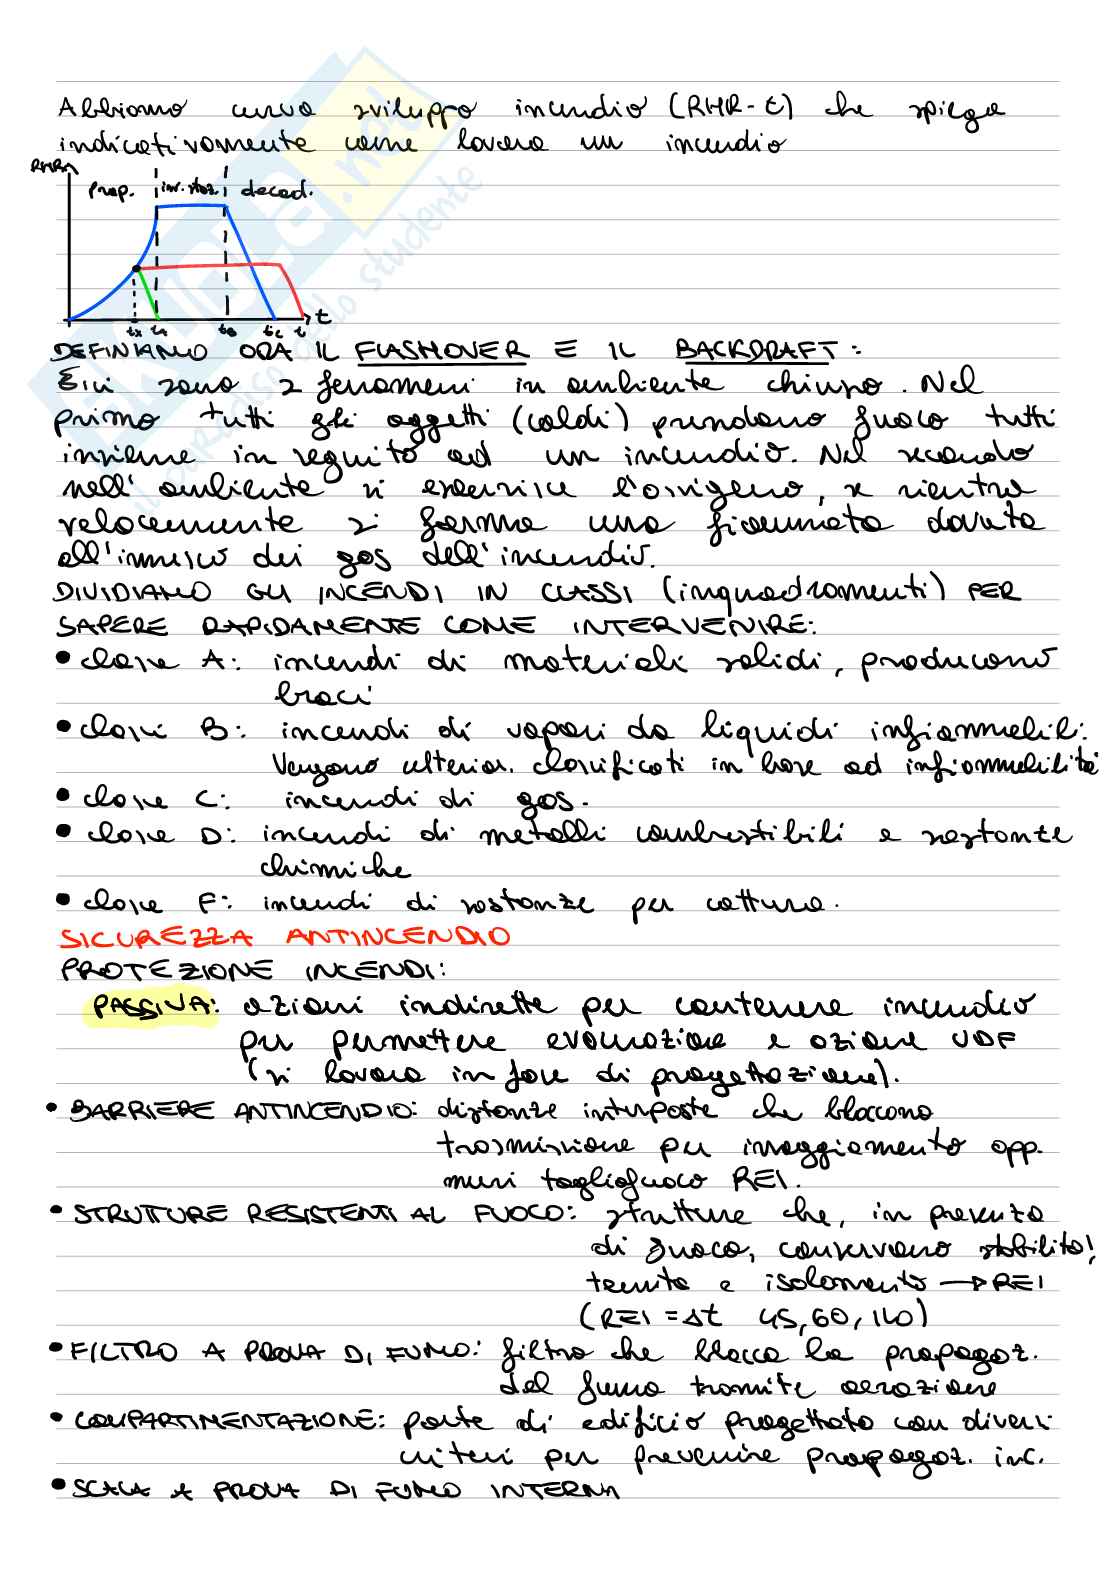 Abbiamo curva sviluppo incendio (RHR-t) che spiega
indicativamente come lavora un incendio
RHR
prop. inc. staz. decad.
tx tA tB tC t t
DEFINIAMO ORA IL FLASHOVER E IL BACKDRAFT:
sono 2 fenomeni in ambiente chiuso. Nel
primo tutti gli oggetti (caldi) prendono fuoco tutti
insieme in seguito ad un incendio. Nel secondo
nell'ambiente si esaurisce l'ossigeno, se rientra
velocemente si forma una fiammata dovuta
all'innesco dei gas dell'incendio.
DIVIDIAMO GLI INCENDI IN CLASSI (inquadramenti) PER
SAPERE RAPIDAMENTE COME INTERVENIRE:
• classe A: incendi di materiali solidi, producono
braci
• classi B: incendi di vapori da liquidi infiammabili.
Vengono ulterior. classificati in base ad infiammabilità
• classe C: incendi di gas.
• classe D: incendi di metalli combustibili e sostanze
chimiche
• classe F: incendi di sostanze per cottura.
SICUREZZA ANTINCENDIO
PROTEZIONE INCENDI:
PASSIVA: azioni indirette per contenere incendio
per permettere evacuazione e azione VDF
(si lavora in fase di progettazione).
• BARRIERE ANTINCENDIO: distanze interposte che bloccano
trasmissione per irraggiamento opp.
muri tagliafuoco REI.
• STRUTTURE RESISTENTI AL FUOCO: strutture che, in presenza
di fuoco, conservano stabilità,
tenuta e isolamento → REI
(REI = Δt 45, 60, 120)
• FILTRO A PROVA DI FUMO: filtro che blocca la propagaz.
del fumo tramite aerazione
• COMPARTIMENTAZIONE: parte di edificio progettato con diversi
criteri per prevenire propagaz. inc.
• SCALA A PROVA DI FUMO INTERNA
skuola.net
il paradiso dello studente